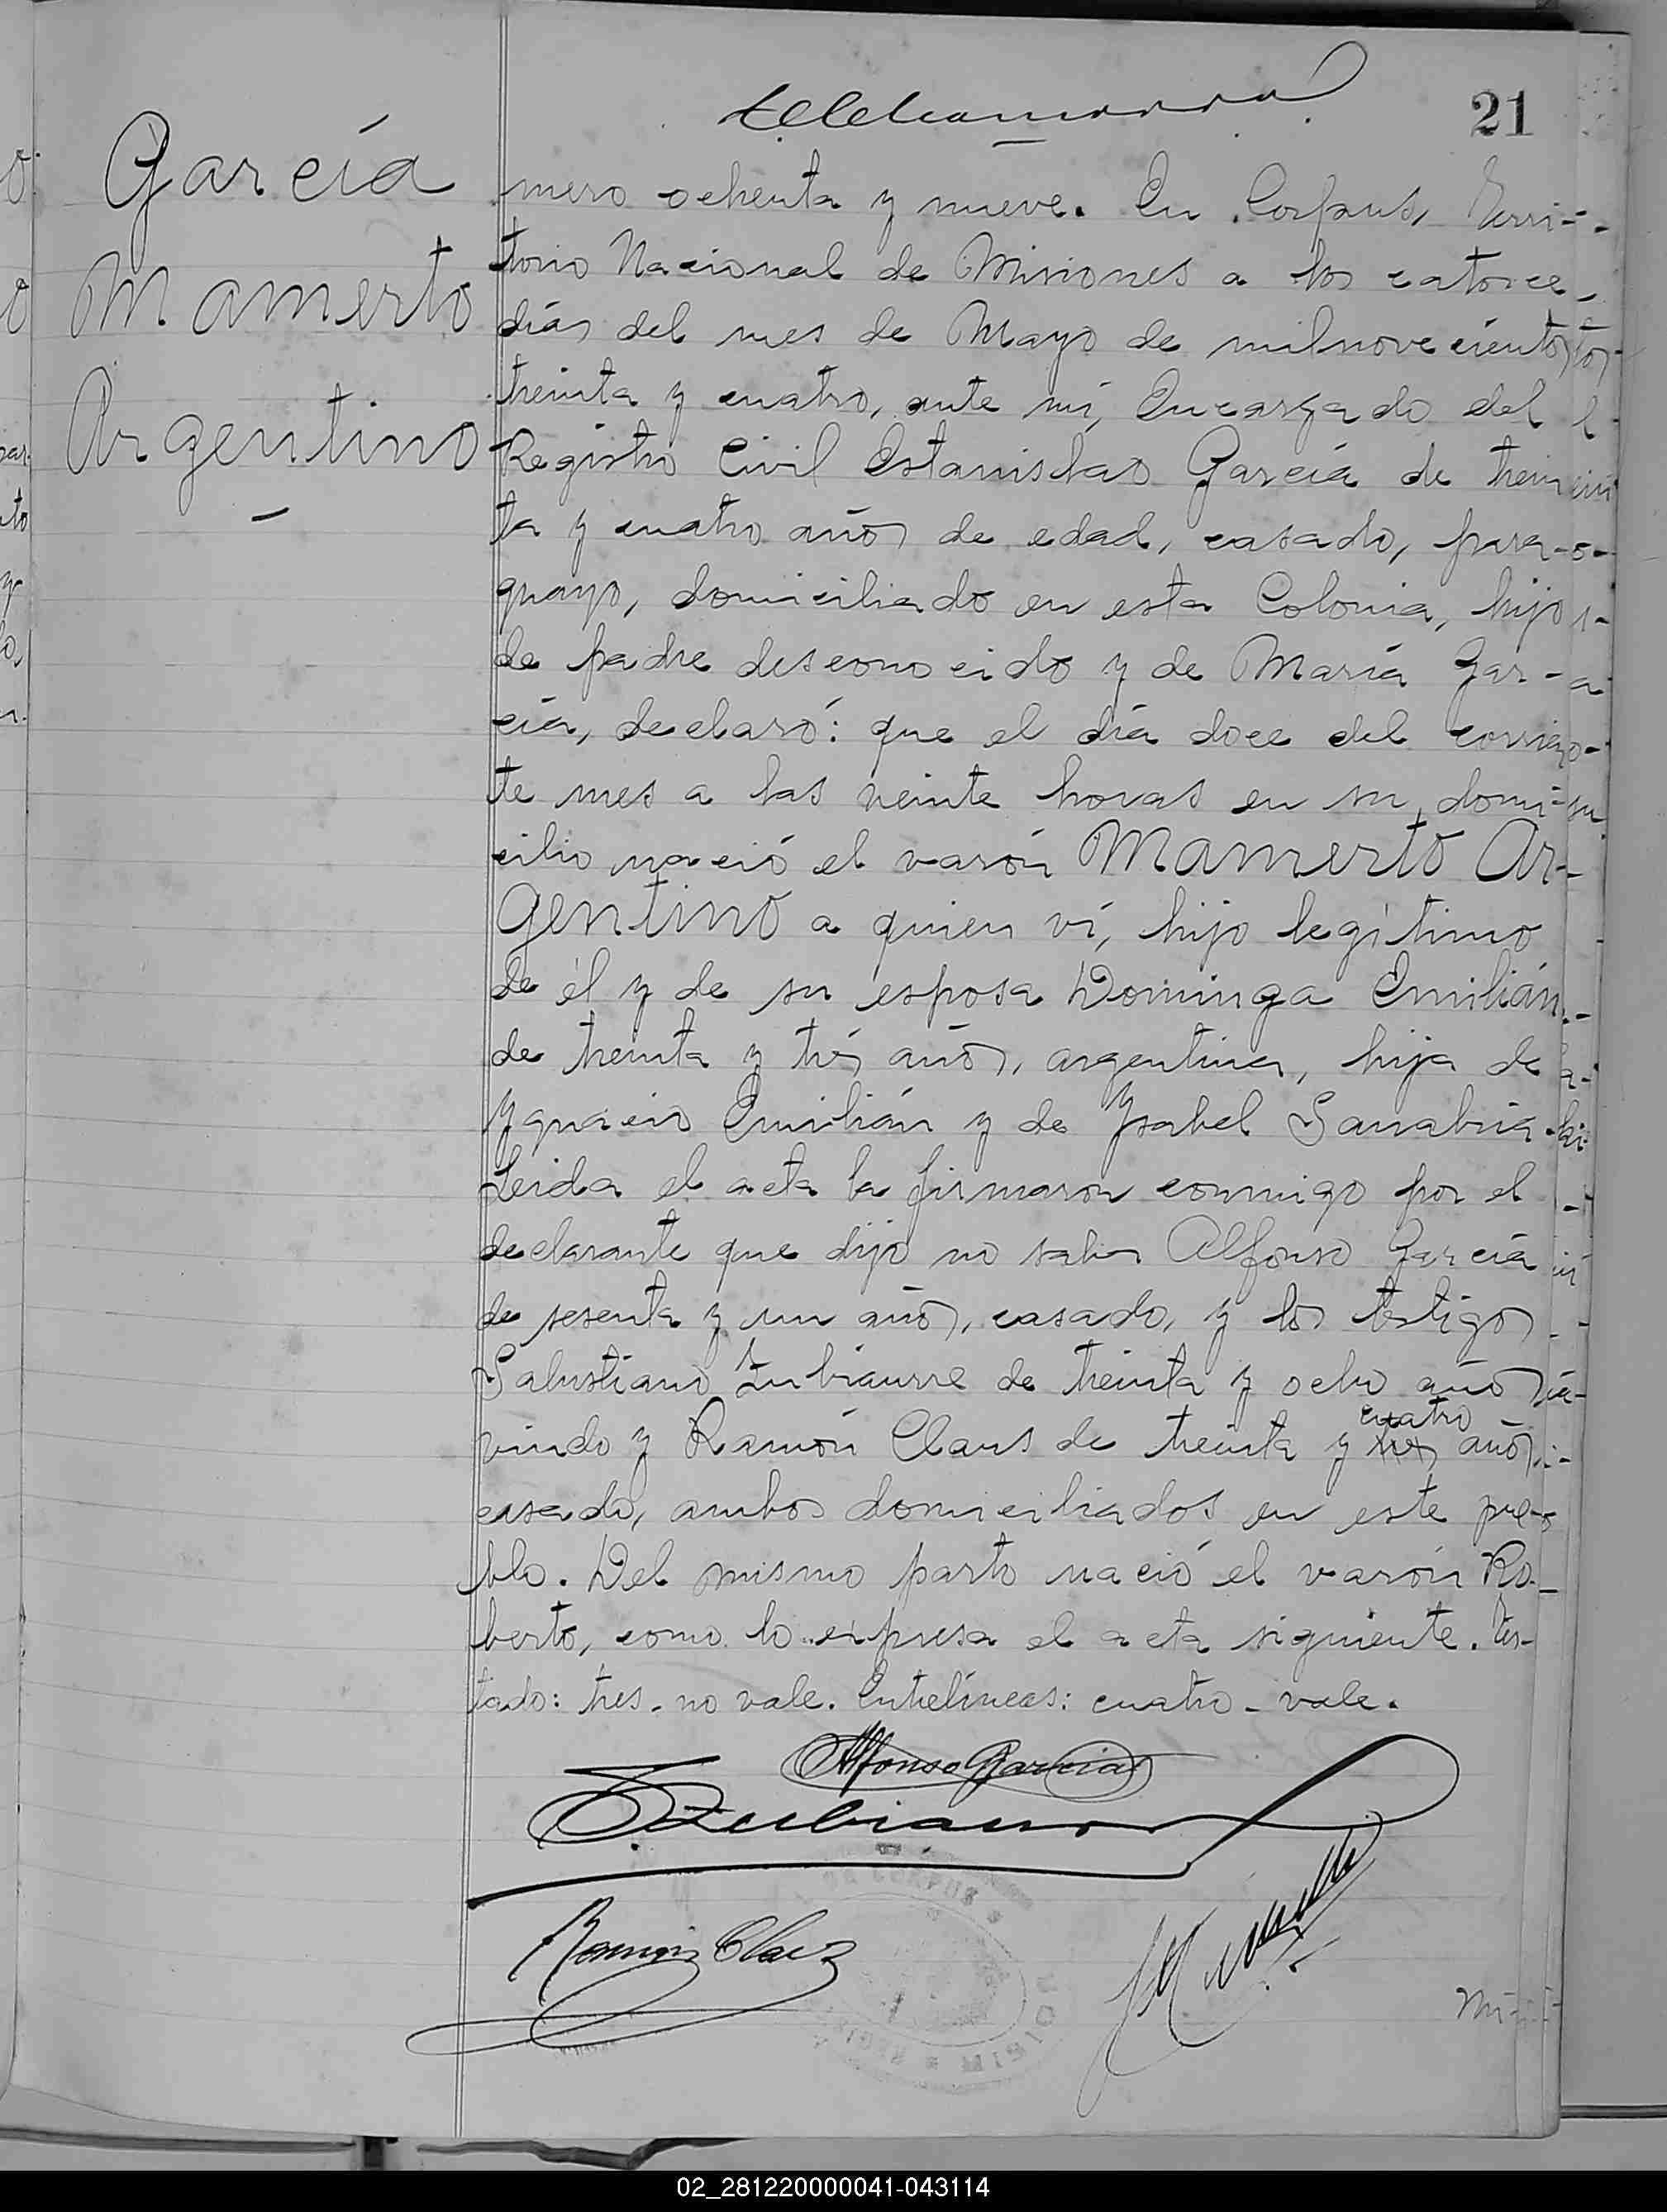 21
García
Mamerto
Argentino
mero ochenta y nueve. En Corpus, Terri-
torio Nacional de Misiones a los catorce
días del mes de Mayo de milnovecientos
treinta y cuatro, ante mí, Encargado del
Registro Civil Estanislao García de trein
ta y cuatro años de edad, casado, para-
guayo, domiciliado en esta Colonia, hijo
de padre desconocido y de María Gar-
cía, declaró: que el día doce del corrien
te mes a las veinte horas en su domi-
cilio nació el varón Mamerto Ar-
gentino a quien ví, hijo legítimo
de él y de su esposa Dominga Emilián
de treinta y trés años, argentina, hija de
Ygnacio Emilián y de Ysabel Sanabria.
Leida el acta la firmaron conmigo por el
declarante que dijo no saber Alfonso García
de sesenta y un años, casado, y los testigos
Salustiano Zubiaurre de treinta y ocho años
cuatro
viudo y Ramón Claus de treinta y tres años
casado, ambos domiciliados en este pue-
blo. Del mismo parto nació el varón Ro-
berto, como lo expresa el acta siguiente. Tes-
tado: tres. no vale. Entrelíneas: cuatro - vale.
Alfonso Garcia
S Zubiaurre
Ramón Claus
DE CORPUS
02_281220000041-043114